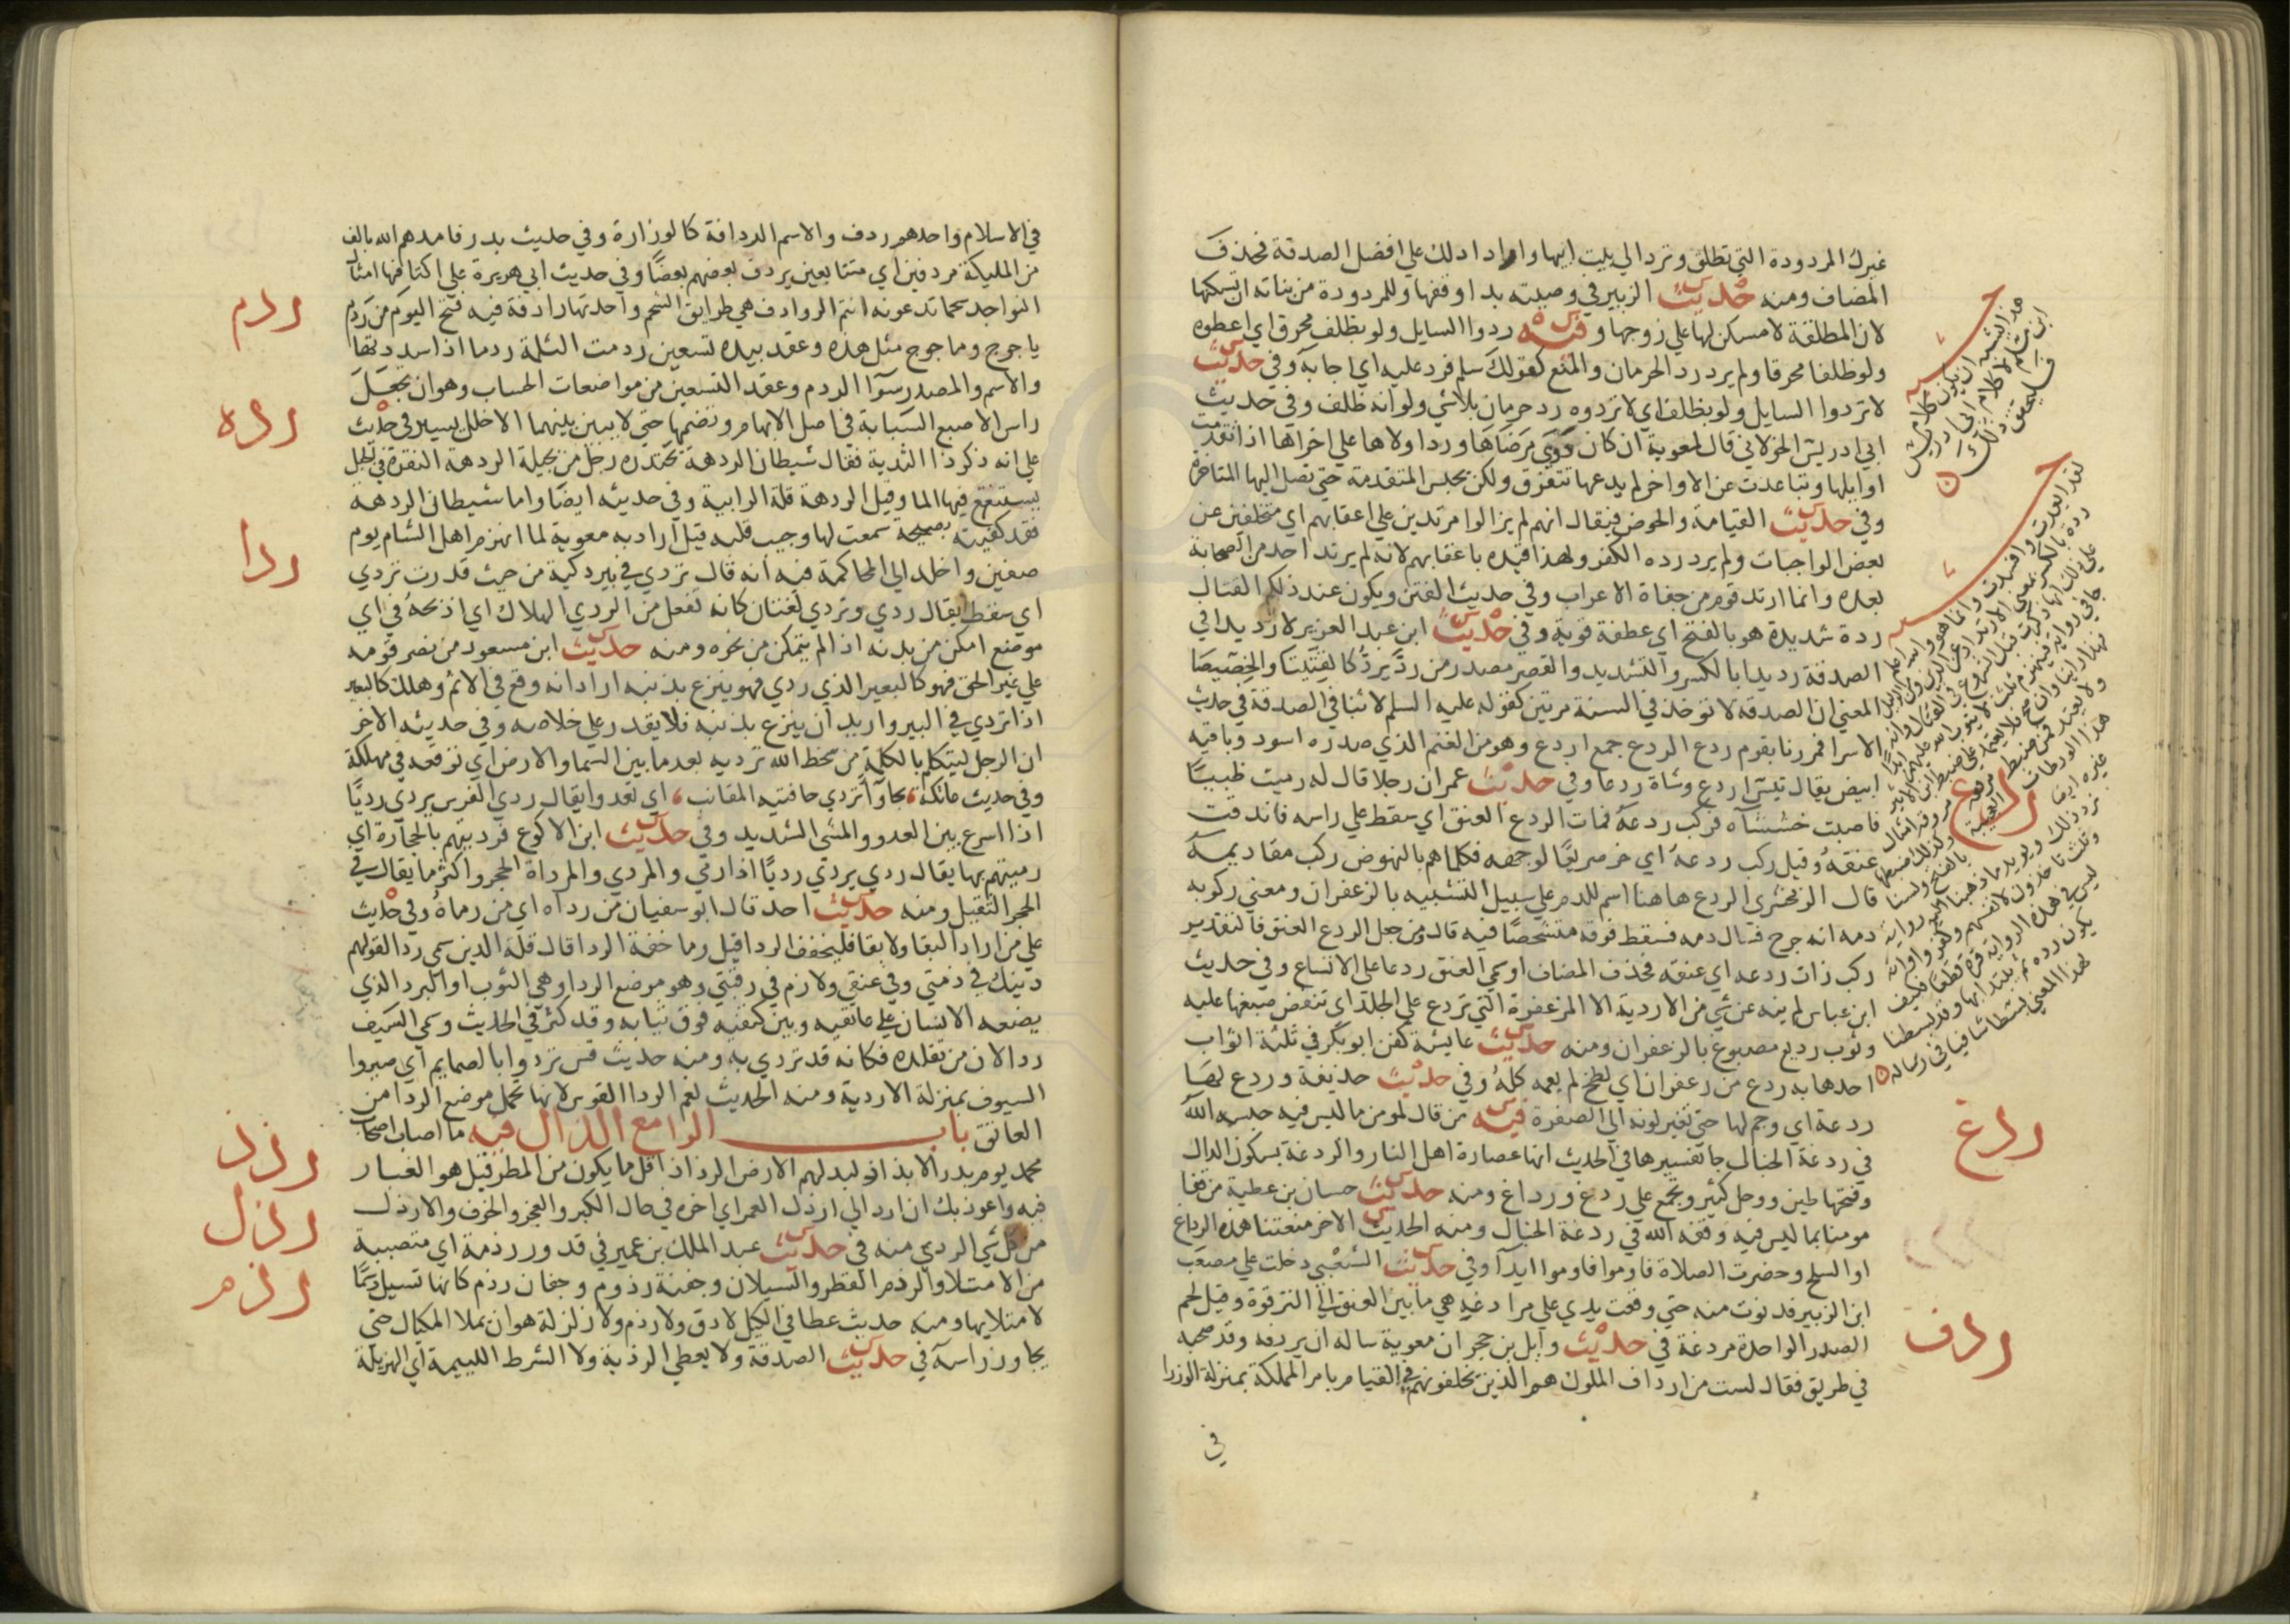 غيرك المردودة التي تطلق وترد الى بيت ابيها واراد ادلك علي افضل الصدقة فحذف
المضاف ومنه حديث الزبير في وصيته بدار وقفها وللمردودة من بناته ان تسكنها
لان المطلقة لا مسكن لها علي زوجها وفيه ردوا السايل ولو بظلف محرق اي اعطوه
ولو ظلفا محرقا ولم يرد رد الحرمان والمنع كقولك سلم فرد عليه اي اجابه وفي حديث
لا تردوا السايل ولو بظلف اي لا تردوه رد حرمان بلا شي ولو انه ظلف وفي حديث
ابي ادريس الخولاني قال لمعوية ان كان داوى مرضاها ورد اولاها علي اخراها اذا تقدمت
اوايلها وتباعدت عن الاواخر لم يدعها تتفرق ولكن يحبس المتقدمة حتى تصل اليها المتاخرة
وفي حديث القيامة والحوض فيقال انهم لم يزالوا مرتدين علي اعقابهم اي متخلفين عن
بعض الواجبات ولم يرد ردة الكفر ولهذا قيده باعقابهم لانه لم يرتد احد من الصحابة
بعده وانما ارتد قوم من جفاة الاعراب وفي حديث الفتن ويكون عند ذلكم القتال
ردة شديدة هو بالفتح اي عطفة قوية وفي حديث ابن عبد العزيز لا رديدا في
الصدقة رديدا بالكسر والتشديد والقصر مصدر من رد يرد كالقتيتا والخصيصا
المعني ان الصدقة لا توخذ في السنة مرتين كقوله عليه السلم لا ثنا في الصدقة في حديث
الاسرا فمررنا بقوم ردع الردع جمع اردع وهو من الغنم الذي صدره اسود وباقيه
ابيض يقال تيس اردع وشاة ردعا وفي حديث عمران رجلا قال له رميت ظبيا
فاصبت خششاه فركب ردعه فمات الردع العنق اي سقط علي راسه فاندقت
عنقه وقيل ركب ردعه اي خر صريعا لوجهه فكلما هم بالنهوض ركب مقاديمه
قال الزمخشري الردع هاهنا اسم للدم علي سبيل التشبيه بالزعفران ومعني ركوبه
دمه انه جرح فسال دمه فسقط فوقه متشحطا فيه قال ومن جعل الردع العنق فالتقدير
ركب ذات ردعه اي عنقه فحذف المضاف او سمي العنق ردعا علي الاتساع وفي حديث
ابن عباس لم ينه عن شي من الاردية الا المزعفرة التي تردع علي الجلد اي تنفض صبغها عليه
وثوب رديع مصبوغ بالزعفران ومنه حديث عايشة كفن ابو بكر في ثلثة اثواب
احدها به ردع من زعفران اي لطخ لم يعمه كله وفي حديث حذيفة وردع لها
ردعة اي وجم لها حتى تغير لونه الي الصفرة فيه من قال لمومن ما ليس فيه حبسه الله
في ردغة الخبال جا تفسيرها في الحديث انها عصارة اهل النار والردغة بسكون الدال
وفتحها طين ووحل كثير ويجمع علي ردغ ورداغ ومنه حديث حسان بن عطية من قفا
مومنا بما ليس فيه وقفه الله في ردغة الخبال ومنه الحديث الاخر منعتنا هذه الرداغ
او السلم وحضرت الصلاة فاوموا فاوموا ايدآ وفي حديث الشعبي دخلت علي مصعب
ابن الزبير فدنوت منه حتي وقعت يدي علي مرادغه هي ما بين العنق الي الترقوة وقيل لحم
الصدر الواحدة مردغة في حديث وايل بن حجر ان معوية ساله ان يردفه وقد صحبه
في طريق فقال لست من ارداف الملوك هم الذين يخلفونهم في القيام بامر المملكة بمنزلة الوزرا
في
ردع
ردغ
ردف
في الاسلام واحدهم ردف والاسم الردافة كالوزارة وفي حديث بدر فامدهم الله بالف
من المليكة مردفين اي متتابعين يردف بعضهم بعضا وفي حديث ابي هريرة علي اكتافها امثال
النواجد شحما تدعونه انتم الروادف هي طرايق الشحم واحدتها رادفة فيه فتح اليوم من ردم
ياجوج وماجوج مثل هذه وعقد بيده تسعين ردمت الثلمة ردما اذا سددتها
والاسم والمصدر سوا الردم وعقد التسعين من مواضعات الحساب وهو ان يجعل
راس الاصبع السبابة في اصل الابهام وتضمها حتي لا يبين بينهما الا خلل يسير في حديث
علي انه ذكر ذا الثدية فقال شيطان الردهة يحتدره رجل من بجيلة الردهة النقرة في الجبل
يستنقع فيها الما وقيل الردهة قلة الرابية وفي حديثه ايضا واما شيطان الردهة
فقد كفيته بصيحة سمعت لها وجيب قلبه قيل اراد به معوية لما انهزم اهل الشام يوم
صفين واخلد الي المحاكمة فيه انه قال تردي في بير ذكية من حيث قدرت تردي
اي سقط يقال ردي وتردي لغتان كانه تفعل من الردي الهلاك اي اذبحه في اي
موضع امكن من بدنه اذا لم يتمكن من نحره ومنه حديث ابن مسعود من نصر قومه
علي غير الحق فهو كالبعير الذي ردي فهو ينزع بذنبه اراد انه وقع في الاثم وهلك كالبعير
اذا تردي في البير واريد ان ينزع بذنبه فلا يقدر علي خلاصه وفي حديثه الاخر
ان الرجل ليتكلم بالكلمة من سخط الله ترديه بعد ما بين السما والارض اي توقعه في مهلكة
وفي حديث عاتكة، بجاوآ تردي حافتيه المقانب، اي تعدو يقال ردي الفرس يردي رديا
اذا اسرع بين العدو والمشي الشديد وفي حديث ابن الاكوع فرديتهم بالحجارة اي
رميتهم بها يقال ردي يردي رديا اذا رمي والمردي والمرداة الحجر واكثر ما يقال في
الحجر الثقيل ومنه حديث احد قال ابو سفيان من رداه اي من رماه وفي حديث
علي من اراد البقا ولا بقا فليخفف الردا قيل وما خفة الردا قال قلة الدين سمي ردا لقولهم
دينك في ذمتي وفي عنقي ولازم في رقبتي وهو موضع الردا وهي الثوب او البرد الذي
يضعه الانسان علي عاتقيه وبين كتفيه فوق ثيابه وقد كثر في الحديث وسمي السيف
ردا لان من تقلده فكانه قد تردي به ومنه حديث قس تردوا بالصمايم اي صيروا
السيوف بمنزلة الاردية ومنه الحديث نعم الردا القوس لانها تحمل موضع الردا من
العاتق باب الرا مع الذال فيه ما اصاب اصحاب
محمد يوم بدر الا رذاذ لبد لهم الارض الرذاذ اقل ما يكون من المطر قيل هو الغبار
فيه واعوذ بك ان ارد الي ارذل العمر اي اخره في حال الكبر والعجز والخرف والارذل
من كل شي الردي منه في حديث عبد الملك بن عمير في قدور رذمة اي متصببة
من الامتلا والرذم القطر والسيلان وجفنة رذوم وجفان رذم كانها تسيل دسما
لامتلايها ومنه حديث عطا في الكيل لا دق ولا رذم ولا زلزلة هو ان يملا المكيال حتي
يجاوز راسه في حديث الصدقة ولا يعطي الرذية ولا الشرط اللييمة اي الهزيلة
ردم
رده
ردا
رذذ
رذل
رذم